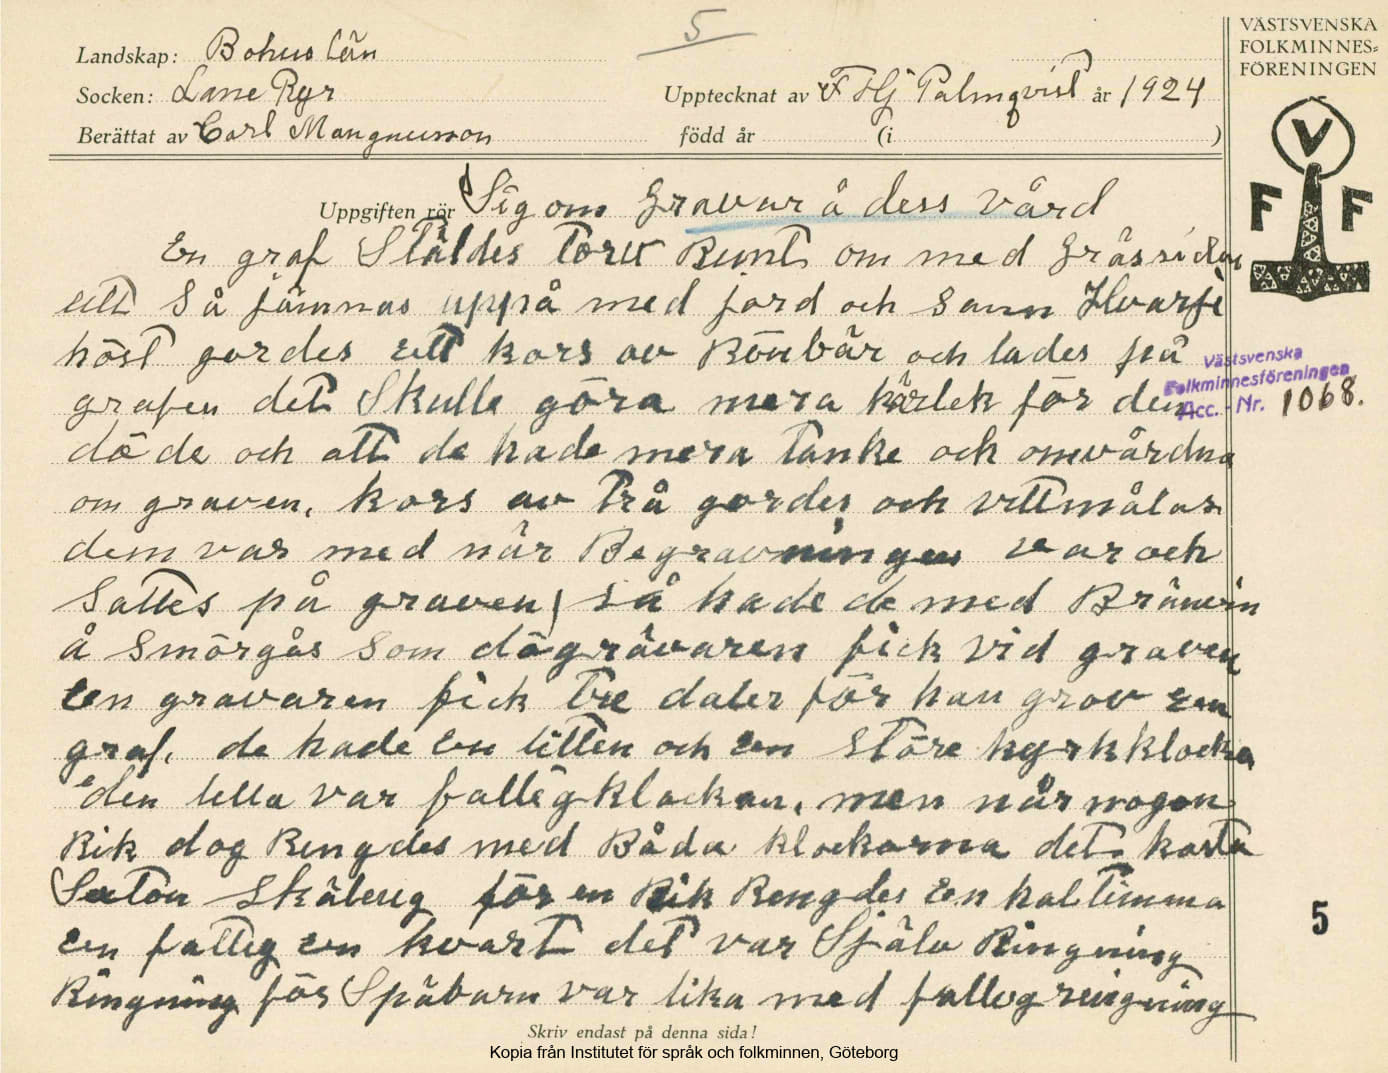 5
VÄSTSVENSKA
FOLKMINNES=
FÖRENINGEN
Landskap: Bohus län
Socken: Lane Ryr
Upptecknat av F Hj Palmqvist år 1924
Berättat av Carl Mangnusson
född år (i )
V
F F
Uppgiften rör Sig om Gravar å dess vård
En graf Stäldes torv Runt om med Gräs sidan
utt Så jämnas uppå med jord och sann Hvarje
höst gordes ett kors av Rönbär och lades på
grafen det Skulle göra mera kärlek för den
döde och att de hade mera tanke och omvårdna
om graven, kors av trä gordes och vittmålas
dem var med när Begravningen var och
Sattes på graven, så hade de med Bränvin
å smörgås som dögrävaren fick vid graven
en gravaren fick tre daler för han grov een
graf, de hade en litten och en störe kyrkklocka
den lella var fattigklockan, men när nogon
Rik dog Rengdes med Båda klockorna det kosta
Sexton Skäleng för en Rik Rengdes En haltimma
en fattig en kvart det var Själv Ringning
Ringning för Späbarn var lika med fatteg ringning
Västsvenska
Folkminnesföreningen
Acc. - Nr. 1068.
5
Skriv endast på denna sida!
Kopia från Institutet för språk och folkminnen, Göteborg